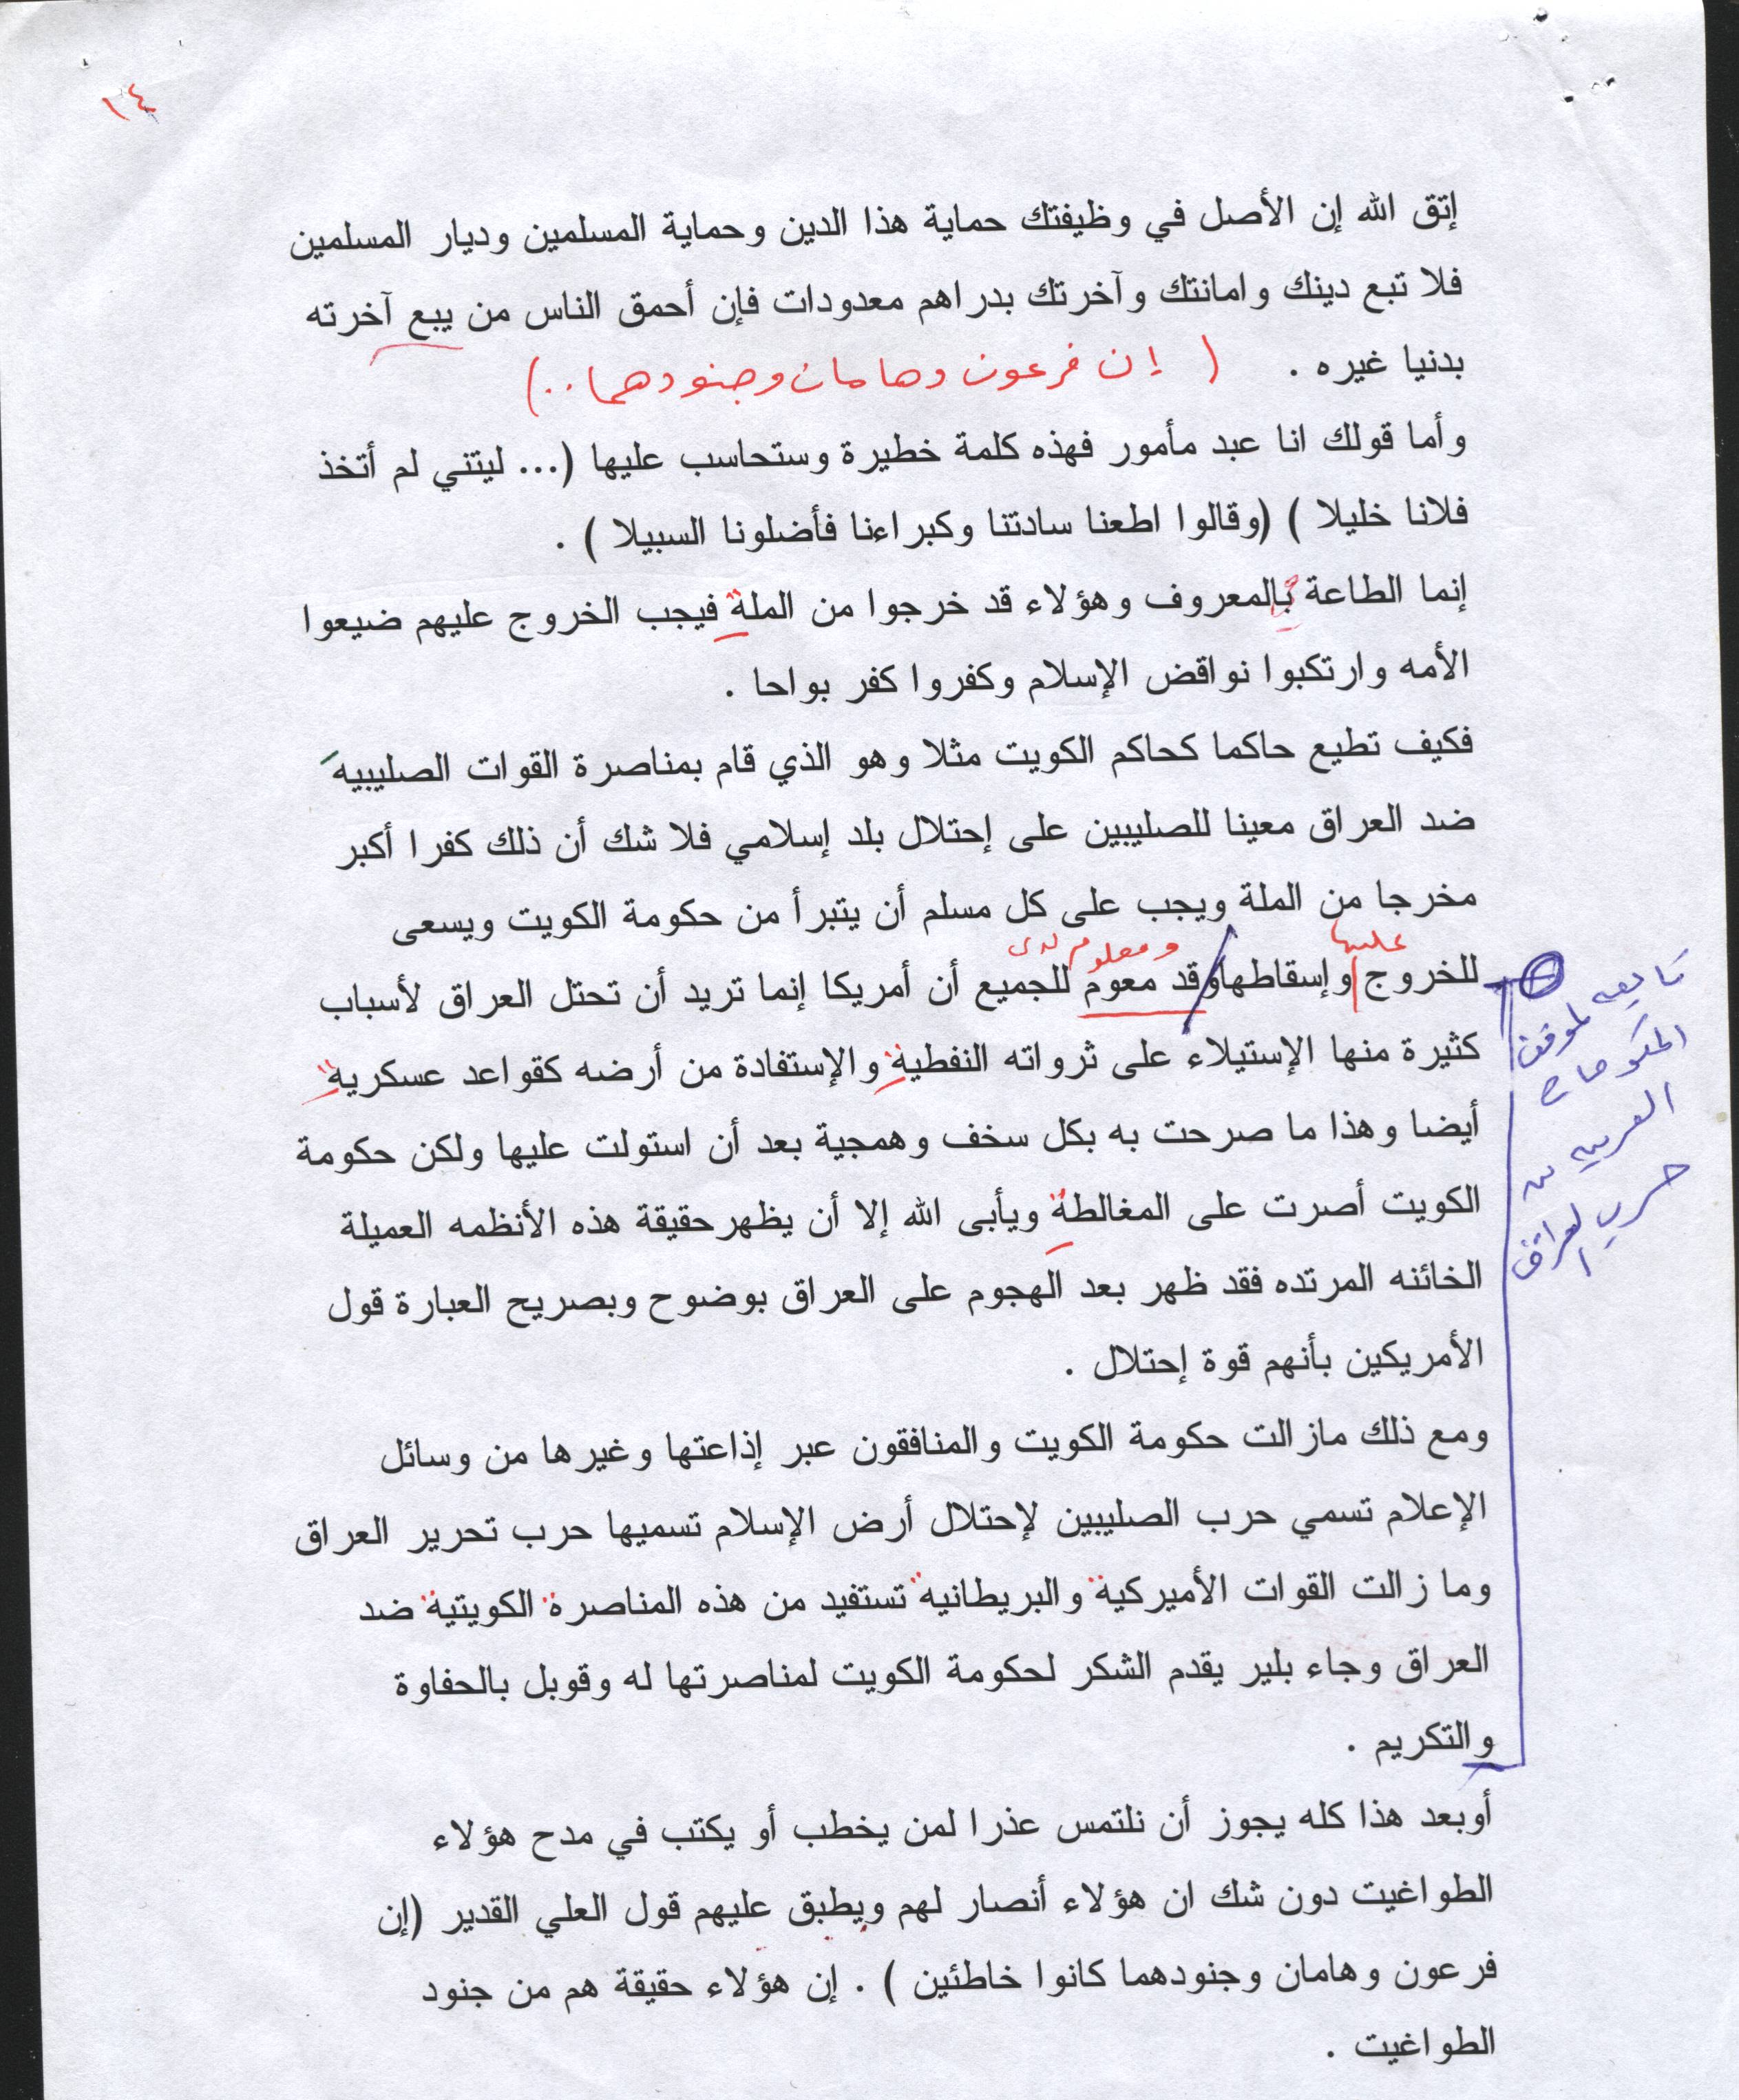 ١٤
إتق الله إن الأصل في وظيفتك حماية هذا الدين وحماية المسلمين وديار المسلمين
فلا تبع دينك وامانتك وآخرتك بدراهم معدودات فإن أحمق الناس من يبع آخرته
بدنيا غيره . ( إن فرعون وهامان وجنودهما ..)
وأما قولك انا عبد مأمور فهذه كلمة خطيرة وستحاسب عليها (... ليتني لم أتخذ
فلانا خليلا ) (وقالوا اطعنا سادتنا وكبراءنا فأضلونا السبيلا ) .
إنما الطاعة بالمعروف وهؤلاء قد خرجوا من الملة فيجب الخروج عليهم ضيعوا
الأمه وارتكبوا نواقض الإسلام وكفروا كفر بواحا .
فكيف تطيع حاكما كحاكم الكويت مثلا وهو الذي قام بمناصرة القوات الصليبيه
ضد العراق معينا للصليبين على إحتلال بلد إسلامي فلا شك أن ذلك كفرا أكبر
مخرجا من الملة ويجب على كل مسلم أن يتبرأ من حكومة الكويت ويسعى
عليها ومعلوم لدى
للخروج وإسقاطها وقد معوم للجميع أن أمريكا إنما تريد أن تحتل العراق لأسباب
كثيرة منها الإستيلاء على ثرواته النفطية والإستفادة من أرضه كقواعد عسكرية
أيضا وهذا ما صرحت به بكل سخف وهمجية بعد أن استولت عليها ولكن حكومة
الكويت أصرت على المغالطة ويأبى الله إلا أن يظهرحقيقة هذه الأنظمه العميلة
الخائنه المرتده فقد ظهر بعد الهجوم على العراق بوضوح وبصريح العبارة قول
الأمريكين بأنهم قوة إحتلال .
ومع ذلك مازالت حكومة الكويت والمنافقون عبر إذاعتها وغيرها من وسائل
الإعلام تسمي حرب الصليبين لإحتلال أرض الإسلام تسميها حرب تحرير العراق
وما زالت القوات الأميركية والبريطانية تستفيد من هذه المناصرة الكويتية ضد
العراق وجاء بلير يقدم الشكر لحكومة الكويت لمناصرتها له وقوبل بالحفاوة
والتكريم .
أوبعد هذا كله يجوز أن نلتمس عذرا لمن يخطب أو يكتب في مدح هؤلاء
الطواغيت دون شك ان هؤلاء أنصار لهم ويطبق عليهم قول العلي القدير (إن
فرعون وهامان وجنودهما كانوا خاطئين ) . إن هؤلاء حقيقة هم من جنود
الطواغيت .
لموقف
الحكومات
العربيه من
حرب العراق